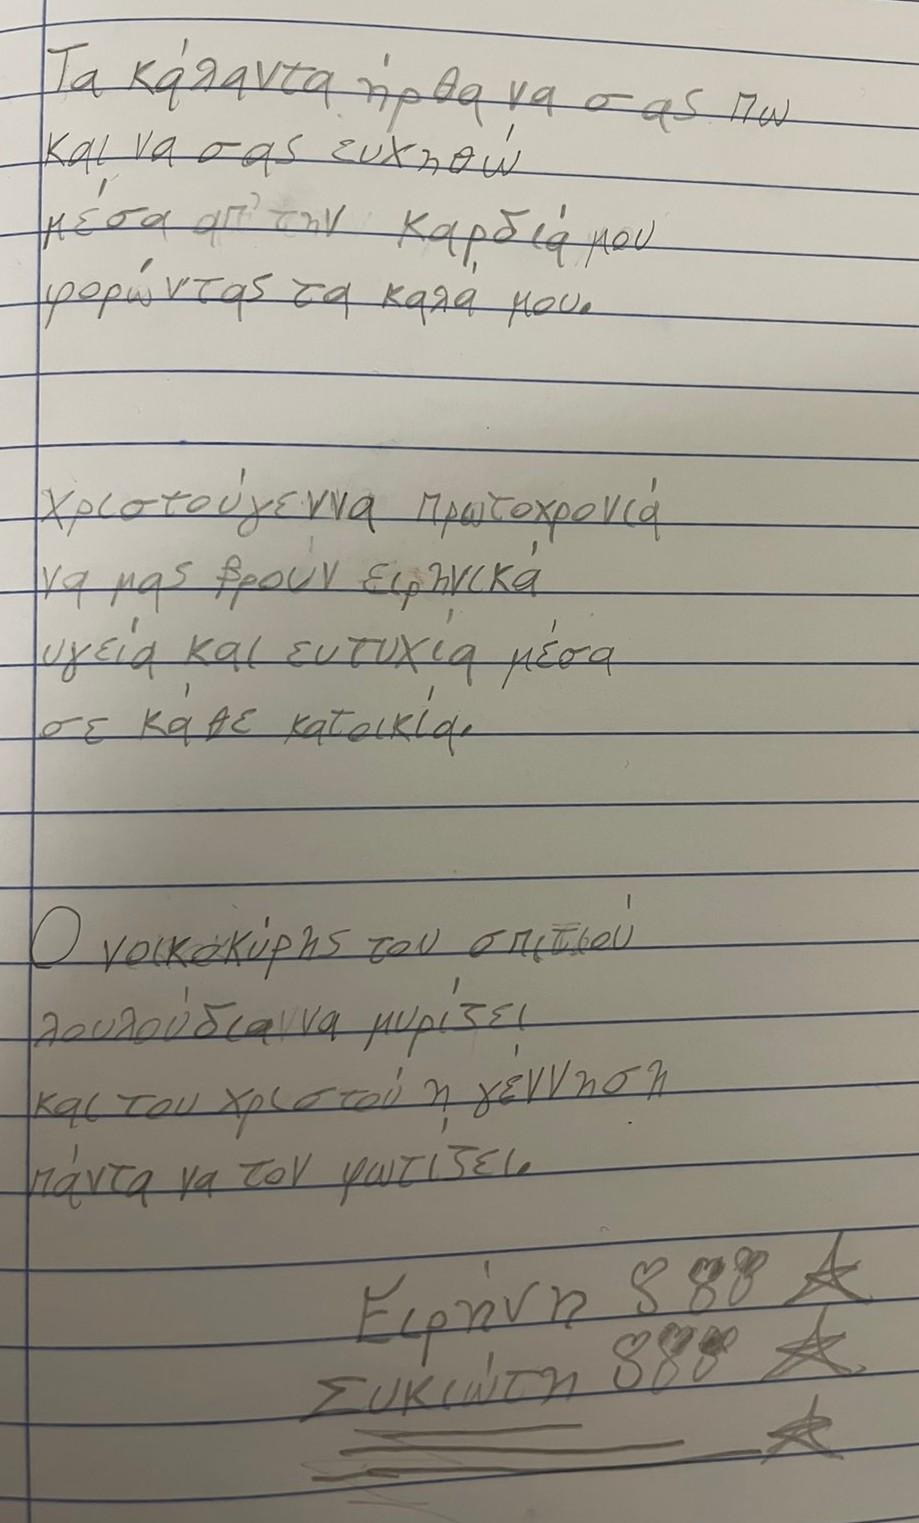 Τα κάλαντα ήρθα να σας πω
και να σας ευχηθώ
μέσα απ' την καρδιά μου
φορώντας τα καλά μου.
Χριστούγεννα Πρωτοχρονιά
να μας βρούν ειρηνικά
υγεία και ευτυχία μέσα
σε κάθε κατοικία.
Ο νοικοκύρης του σπιτιού
λουλούδια να μυρίζει
και του χριστού η γέννηση
πάντα να τον φωτίζει.
Ειρήνη
Συκιώτη